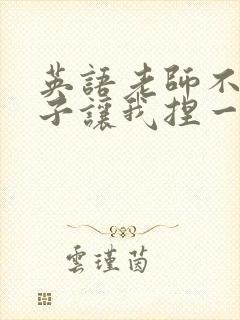 英語老師不
子讓我捏一
雲瑾茵